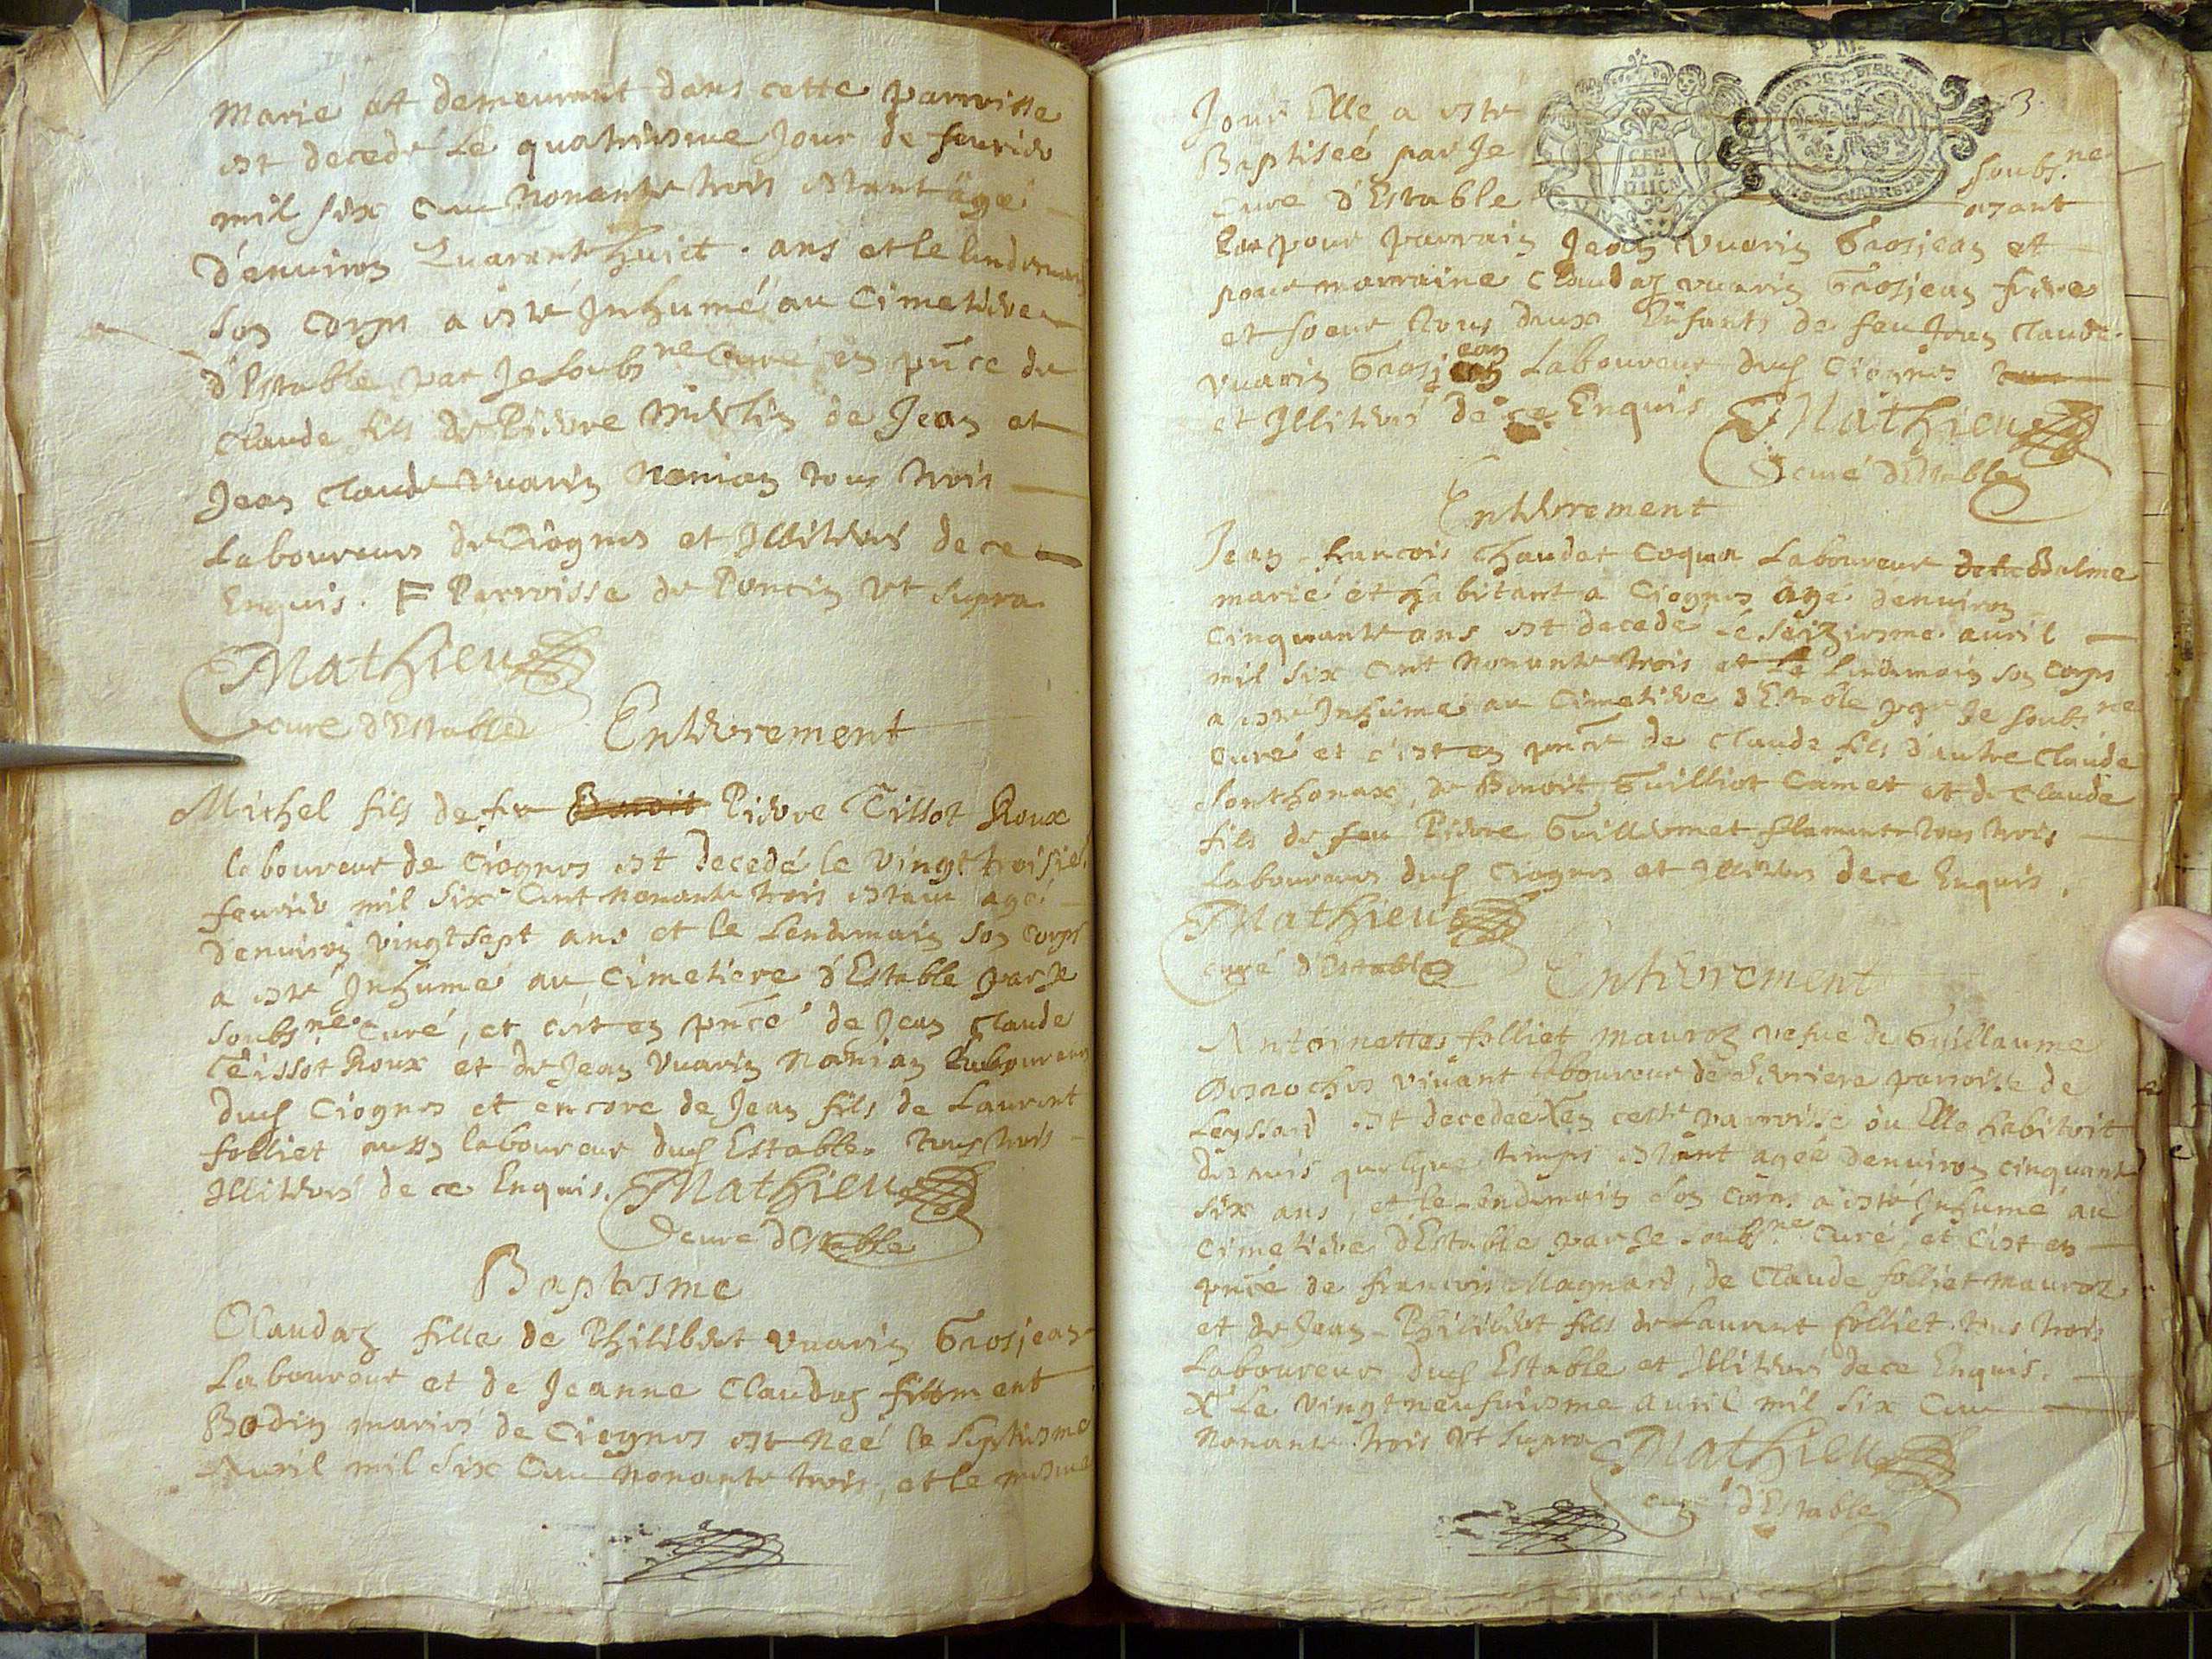 Marié et demeurant dans cette parroisse
est decedé Le quatriesme Jour de feurier
mil six cens Nonante trois estant âgé
d'enuiron Quarante huict ans et le lendemain
son corps a esté Inhumé au Cimetiere
d'Estable par Je Soubs.né Curé en pn̄ce de
Claude fils de Pierre Merlin de Jean et
Jean Claude Vuarin Nonian tous trois
Laboureurs de Ciognes et Illiterés de ce
Enquis. F Parroisse de Poncin Vt Supra.
Mathieu
curé d'Estable
Enterrement
Michel fils de feu Benoit Pierre Tissot Roux
laboureur de Ciognes est decedé le vingt troisie
feurier mil six Cent nonante trois estant agé
d'enuiron vingt sept ans et le Lendemain son corps
a esté Inhumé au Cimetiere d'Estable par Je
soubs.né Curé, et c'est en pn̄ce de Jean Claude
Teissot Roux et de Jean Vuarin Nonian Laboureurs
dud Ciognes et encore de Jean fils de Laurent
folliet aussy laboureur dud Estable. tous trois
Illiterés de ce Enquis. Mathieu
curé d'Estable
Baptesme
Claudaz fille de Philibert Vuarin Grosjean
Laboureur et de Jeanne Claudaz
Bodin mariés de Ciognes est Neé le septiesme
Auril mil six Cens Nonante trois, et le mesme
3
Jour Elle a esté
Baptiseé par Je soubs.né
curé d'Estable ayant
pour parrain Jean Vuarin Grosjean et
pour marraine Claudaz Vuarin Grosjean frere
et soeur tous deux Enfants de feu Jean Claude
Vuarin Grosjean Laboureur dud Ciognes
et Illiterés de ce Enquis Mathieu
curé d'Estable
Enterrement
Jean-francois Chaudet Coquaz Laboureur de la Balme
marié et habitant a Ciognes agé d'enuiron
Cinquante ans est decedé le seiziesme auril
mil six cent Nonante trois et le lendemain son corps
a esté Inhumé au Cimetiere d'Estable par Je soubs.né
Curé et c'est en pn̄ce de Claude fils d'autre Claude
Sonthonax, de Benoit Guilliot Camet et de Claude
fils de feu Pierre Guillermet tous trois
Laboureurs dud Ciognes et Illiterés de ce Enquis.
Mathieu
curé d'Estable
Enterrement
Antoinette folliet mauroz vefue de Guillaume
Desroches viuant laboureur de parroisse de
Leyssard est decedeé X en cette parroisse ou Elle habitoit
depuis quelque temps estant ageé d'enuiron cinquante
six ans, et le Lendemain son Corps a esté Inhumé au
Cimetiere d'Estable par Je soubs.né Curé, et c'est en
pn̄ce de francois Magnard, de Claude folliet mauroz
et de Jean-Philibert fils de Laurent folliet tous trois
Laboureurs dud Estable et Illiterés de ce Enquis.
X Le vingt neufuiesme auril mil six Cens
Nonante trois Vt Supra Mathieu
curé d'Estable